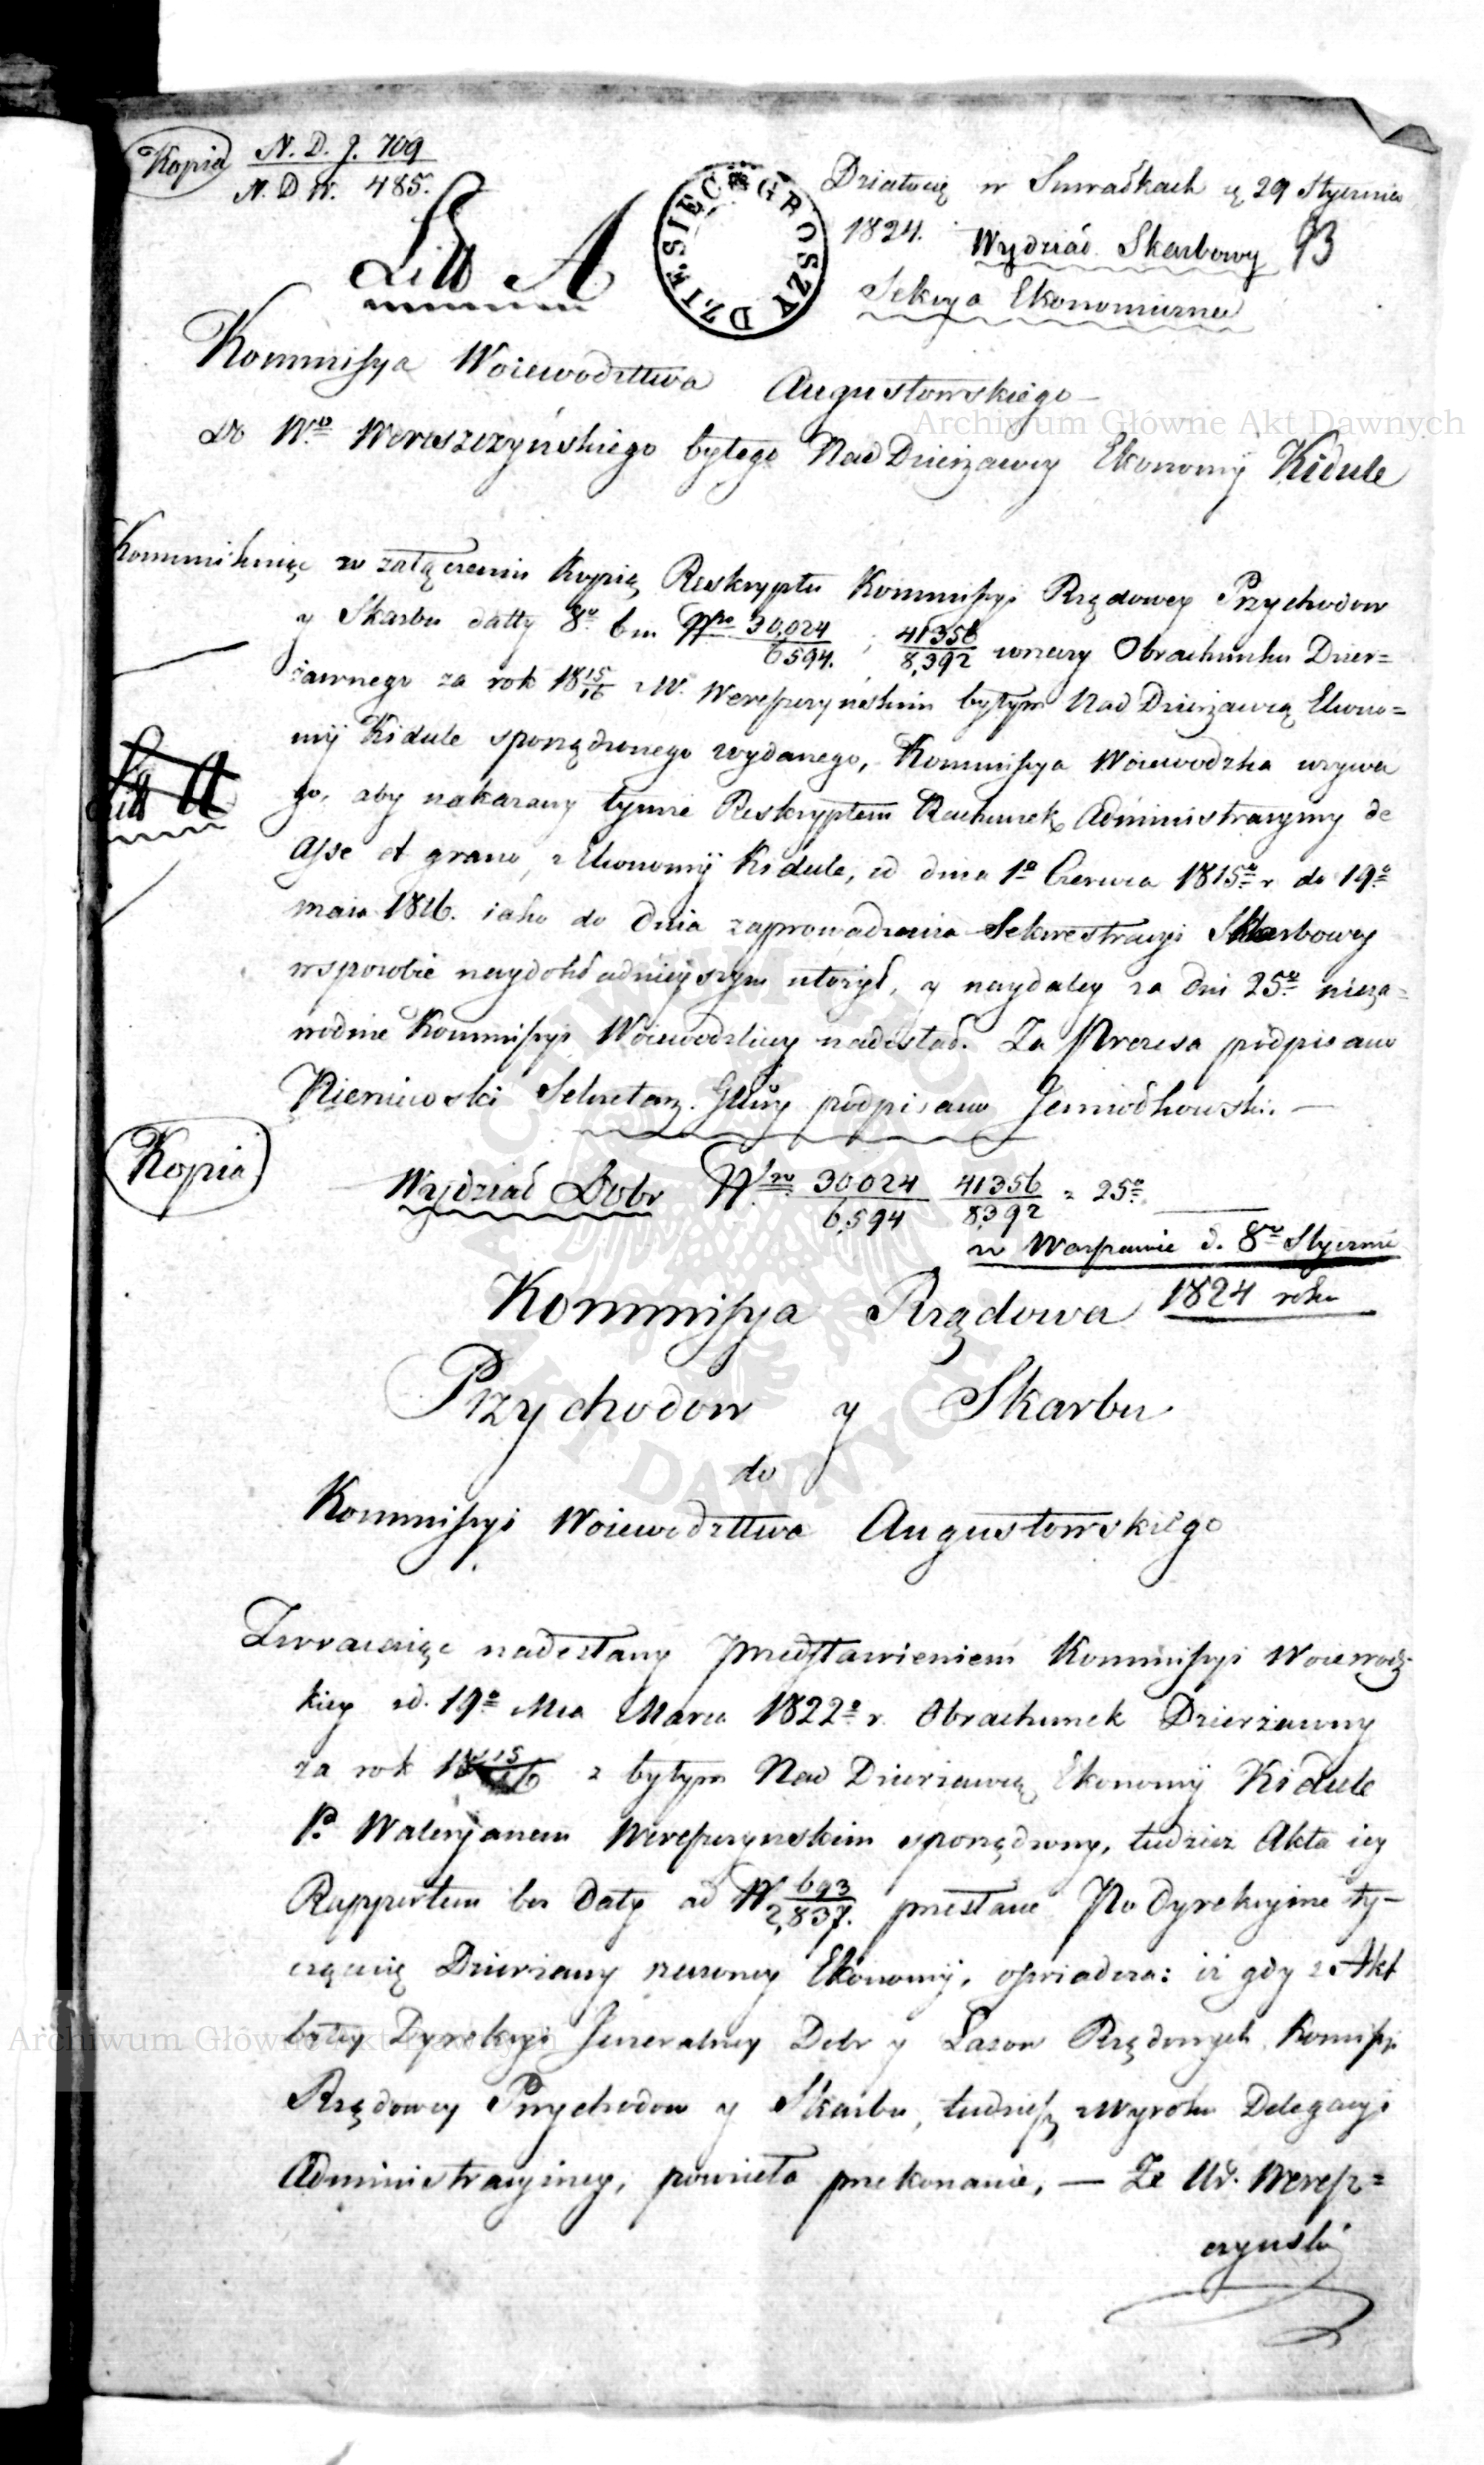 Kopia N. D. J. 709
N. D. W. 485.
Litt A
DZIESIĘC GROSZY
Działo się w Suwałkach d. 29 Stycznia
1824. Wydział Skarbowy 93
Sekcya Ekonomiczna
Kommissya Woiewodztwa Augustowskiego
Archiwum Główne Akt Dawnych
Do Wo Wereszczyńskiego byłego Nad Dzierżawcy Ekonomij Kidule
Kommunikuiąc w załączeniu Kopią Reskryptu Kommissyi Rządowey Przychodow
y Skarbu datty 8o bm Nro 30,024/6594. i 41356/8,392 wzwzy Obrachunku Dzier=
żawnego za rok 18 15/16 z W. Wereszczyńskim byłym Nad Dzierżawcą Ekono=
mij Kidule sporządzonego wydanego, Kommissya Woiewodzka wzywa
go, aby nakazany tymże Reskryptem Rachunek Administracyiny de
Litt A
asse et grano, z Ekonomij Kidule, od dnia 1o Czerwca 1815o r. do 19o
maia 1816. iako do dnia zaprowadzenia Sekwestracyi Skarbowey
w sposobie naydokładnieyszym ułożył, y naydaley za dni 25o nieza=
wodnie Kommissyi Woiewodzkiey nadesłał. Za Prezesa podpisano
Kieniewski Sekretarz Głłny podpisano Jemiołkowski. —
Kopia
Wydział Dobr Nro 30024/6,594 41356/8392 z 25o
w Warszawie d. 8o Stycznia
1824 roku
Kommissya Rządowa
Przychodow y Skarbu
do
Kommissyi Woiewodztwa Augustowskiego
Zwracaiąc nadesłany przedstawieniem Kommissyi Woiewodz=
kiey z d. 19o Mca Marca 1822o r. Obrachunek Dzierżawny
za rok 18 15/16 z byłym Nad Dzierżawcą Ekonomij Kidule
P. Waleryanem Wereszczynskim sporządzony, tudzież Akta iey
Rapportem bez Daty ad N 693/2,837. przesłane Po dyrekcyine ty=
czące się Dzierżawy rzeczoney Ekonomij, oświadcza: iż gdy z Akt
Archiwum Główne Akt Dawnych
byłey Dyrekcyi Jeneralney Dobr y Lasow Rządowych Komissyi
Rządowey Przychodow y Skarbu, tudziesz z Wyroku Delegacyi
Administracyiney, powzięła przekonanie, — Ze Ur. Weresz=
czynski